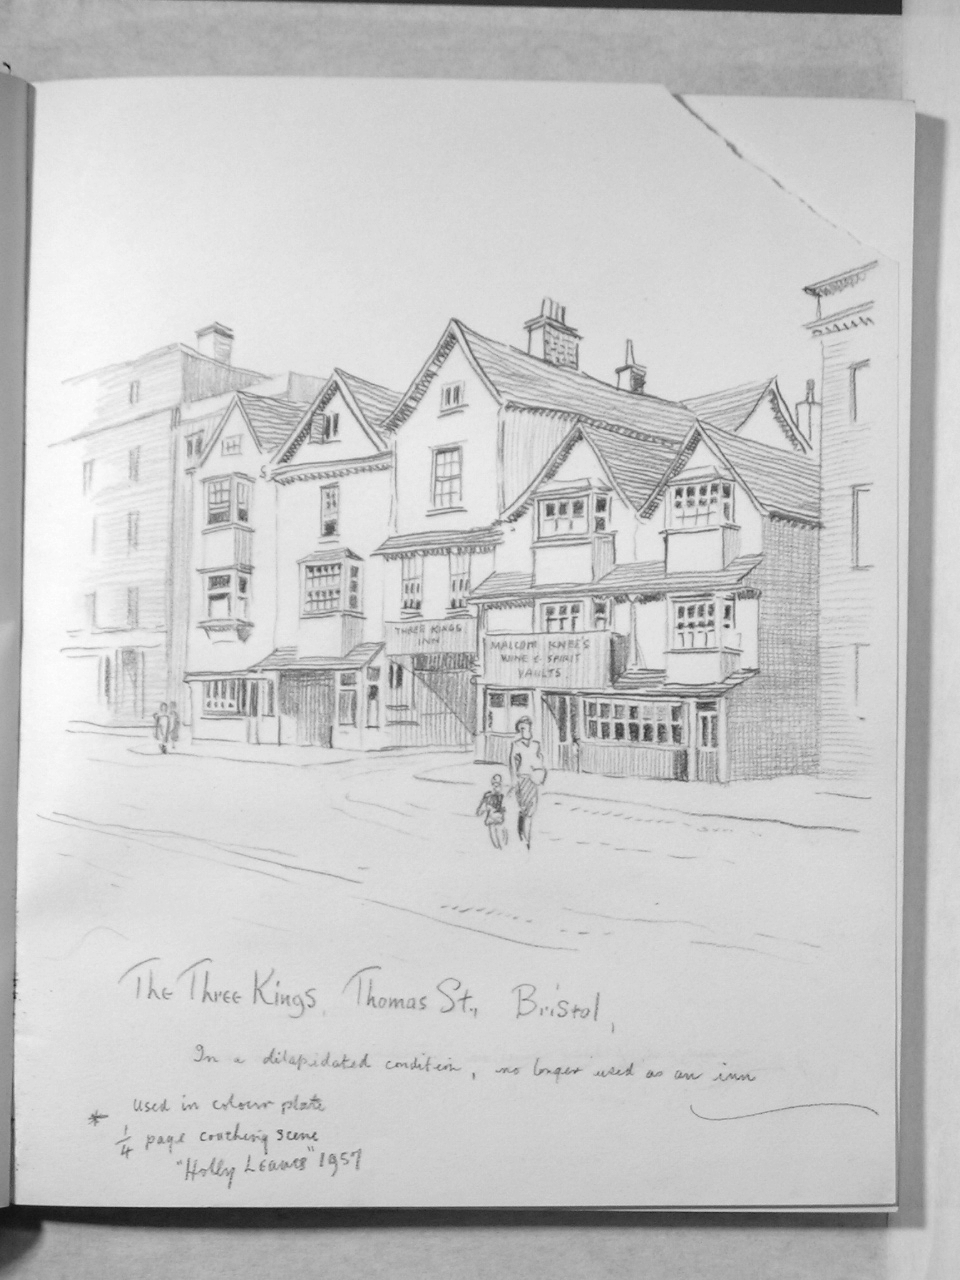 THREE KINGS
INN
MALCOM KNEE'S
WINE & SPIRIT
VAULTS
The Three Kings, Thomas St., Bristol,
In a dilapidated condition, no longer used as an inn
* used in colour plate
1/4 page coaching scene
"Holly Leaves" 1957